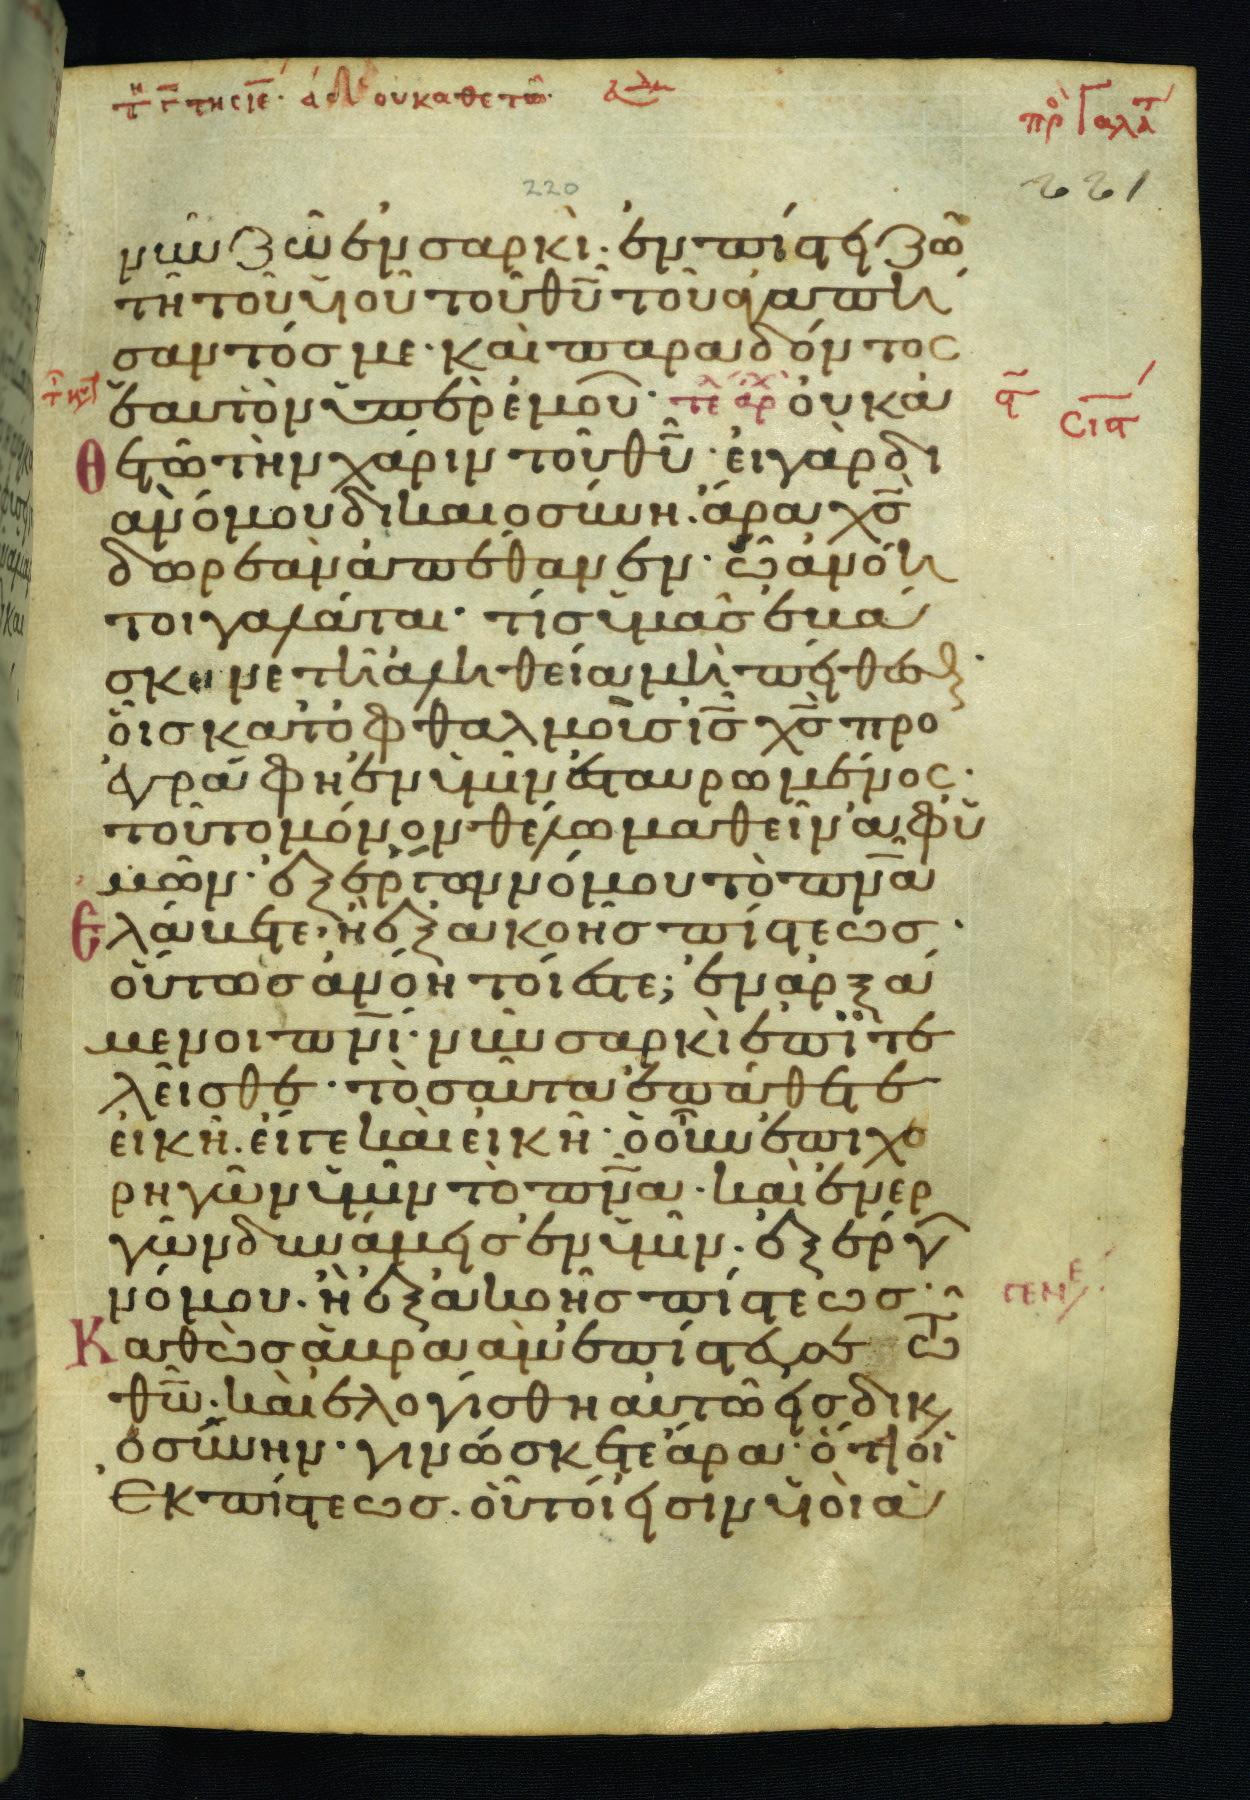 τῇ γ̅ τῆς ιε̅ · ἀδελφοί οὐκ ἀθετῶ ·
πρὸ Γαλατ
220
221
νῦν ζῶ ἐν σαρκὶ · ἐν πίστει ζῶ
τῆ τοῦ υἱοῦ τοῦ θυ̅ τοῦ ἀγαπή
σαντός με · καὶ παραδόντος
ἑαυτὸν ὑπὲρ ἐμοῦ · τε αρχ οὐκ ἀ
θετῶ τὴν χάριν τοῦ θυ̅ · εἰ γὰρ δι
α νόμου δικαιοσύνη · ἄρα χς̅
δωρεὰν ἀπέθανεν · ὦ ἀνόη
τοι γαλάται · τίς ὑμᾶς ἐβάσ
σκηνε τῆ ἀληθεία μὴ πείθεσθαι ·
οἷς κατ ὀφθαλμοὺς ις̅ χς̅ προ
εγράφη ἐν ὑμῖν ἐσταυρωμένος ·
τοῦτο μόνον θέλω μαθεῖν ἀφ ὑ
μῶν · ἐξ ἔργων νόμου τὸ πνα̅
ἐλάβετε · ἢ ἐξ ἀκοῆς πίστεως ·
οὕτως ἀνόητοί ἐστε; ἐναρξά
μενοι πνι̅ · νῦν σαρκὶ ἐπιτε
λεῖσθε · τοσαῦτα ἐπάθετε
εἰκῆ · εἴγε καὶ εἰκῆ · ὁ οὖν ἐπιχο
ρηγῶν ὑμῖν τὸ πνα̅ · καὶ ἐνερ
γῶν δυνάμεις ἐν ὑμῖν · ἐξ ἔργων
νόμου · ἢ ἐξ ἀκοῆς πίστεως ·
Καθὼς ἀβραὰμ ἐπίστευσε τῶ
θω̅ · καὶ ἐλογίσθη αὐτῶ εἰς δικαι
οσύνην · γινώσκετε ἄρα · ὅτι οἱ
ἐκ πίστεως · οὗτοί εἰσιν υἱοὶ ἀ